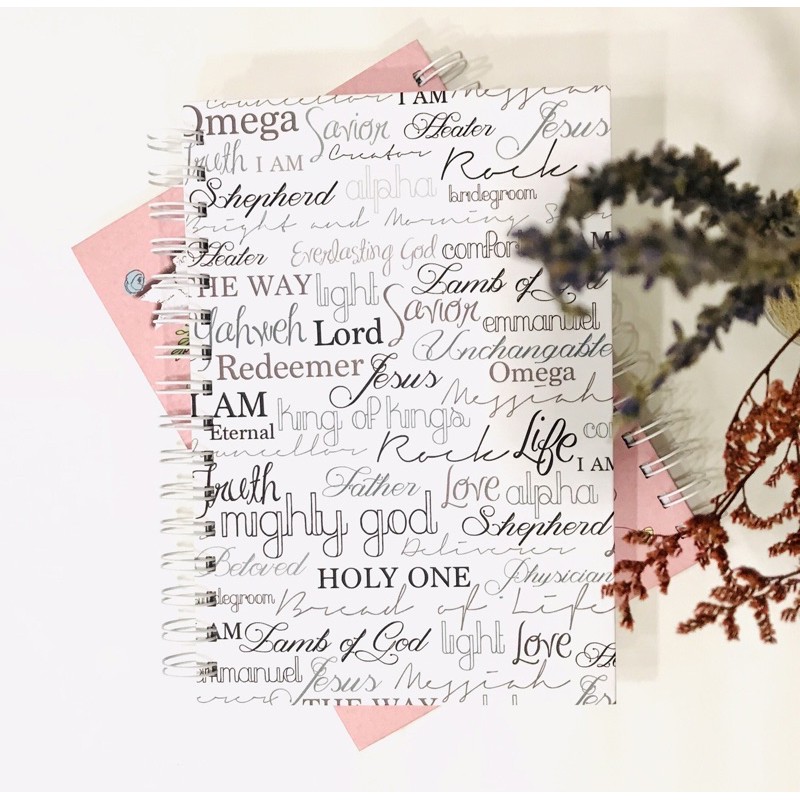 Councellor I AM Messiah
Omega Savior Healer Jesus
Truth I AM Creator Rock
Shepherd alpha bridegroom
Bright and Morning Star
Healer Everlasting God comfor AM
THE WAY light Lamb of God
Yahweh Lord Savior emmanuel
Redeemer Jesus Unchangable
Omega
I AM king of kings Messiah
Eternal Life co
Councellor Rock I AM
Truth Father Love alpha
mighty god Shepherd
Deliverer
Beloved HOLY ONE Physician
bridegroom Bread of Life
AM Lamb of God light Love He
emmanuel Jesus Messiah Jes
THE WAY